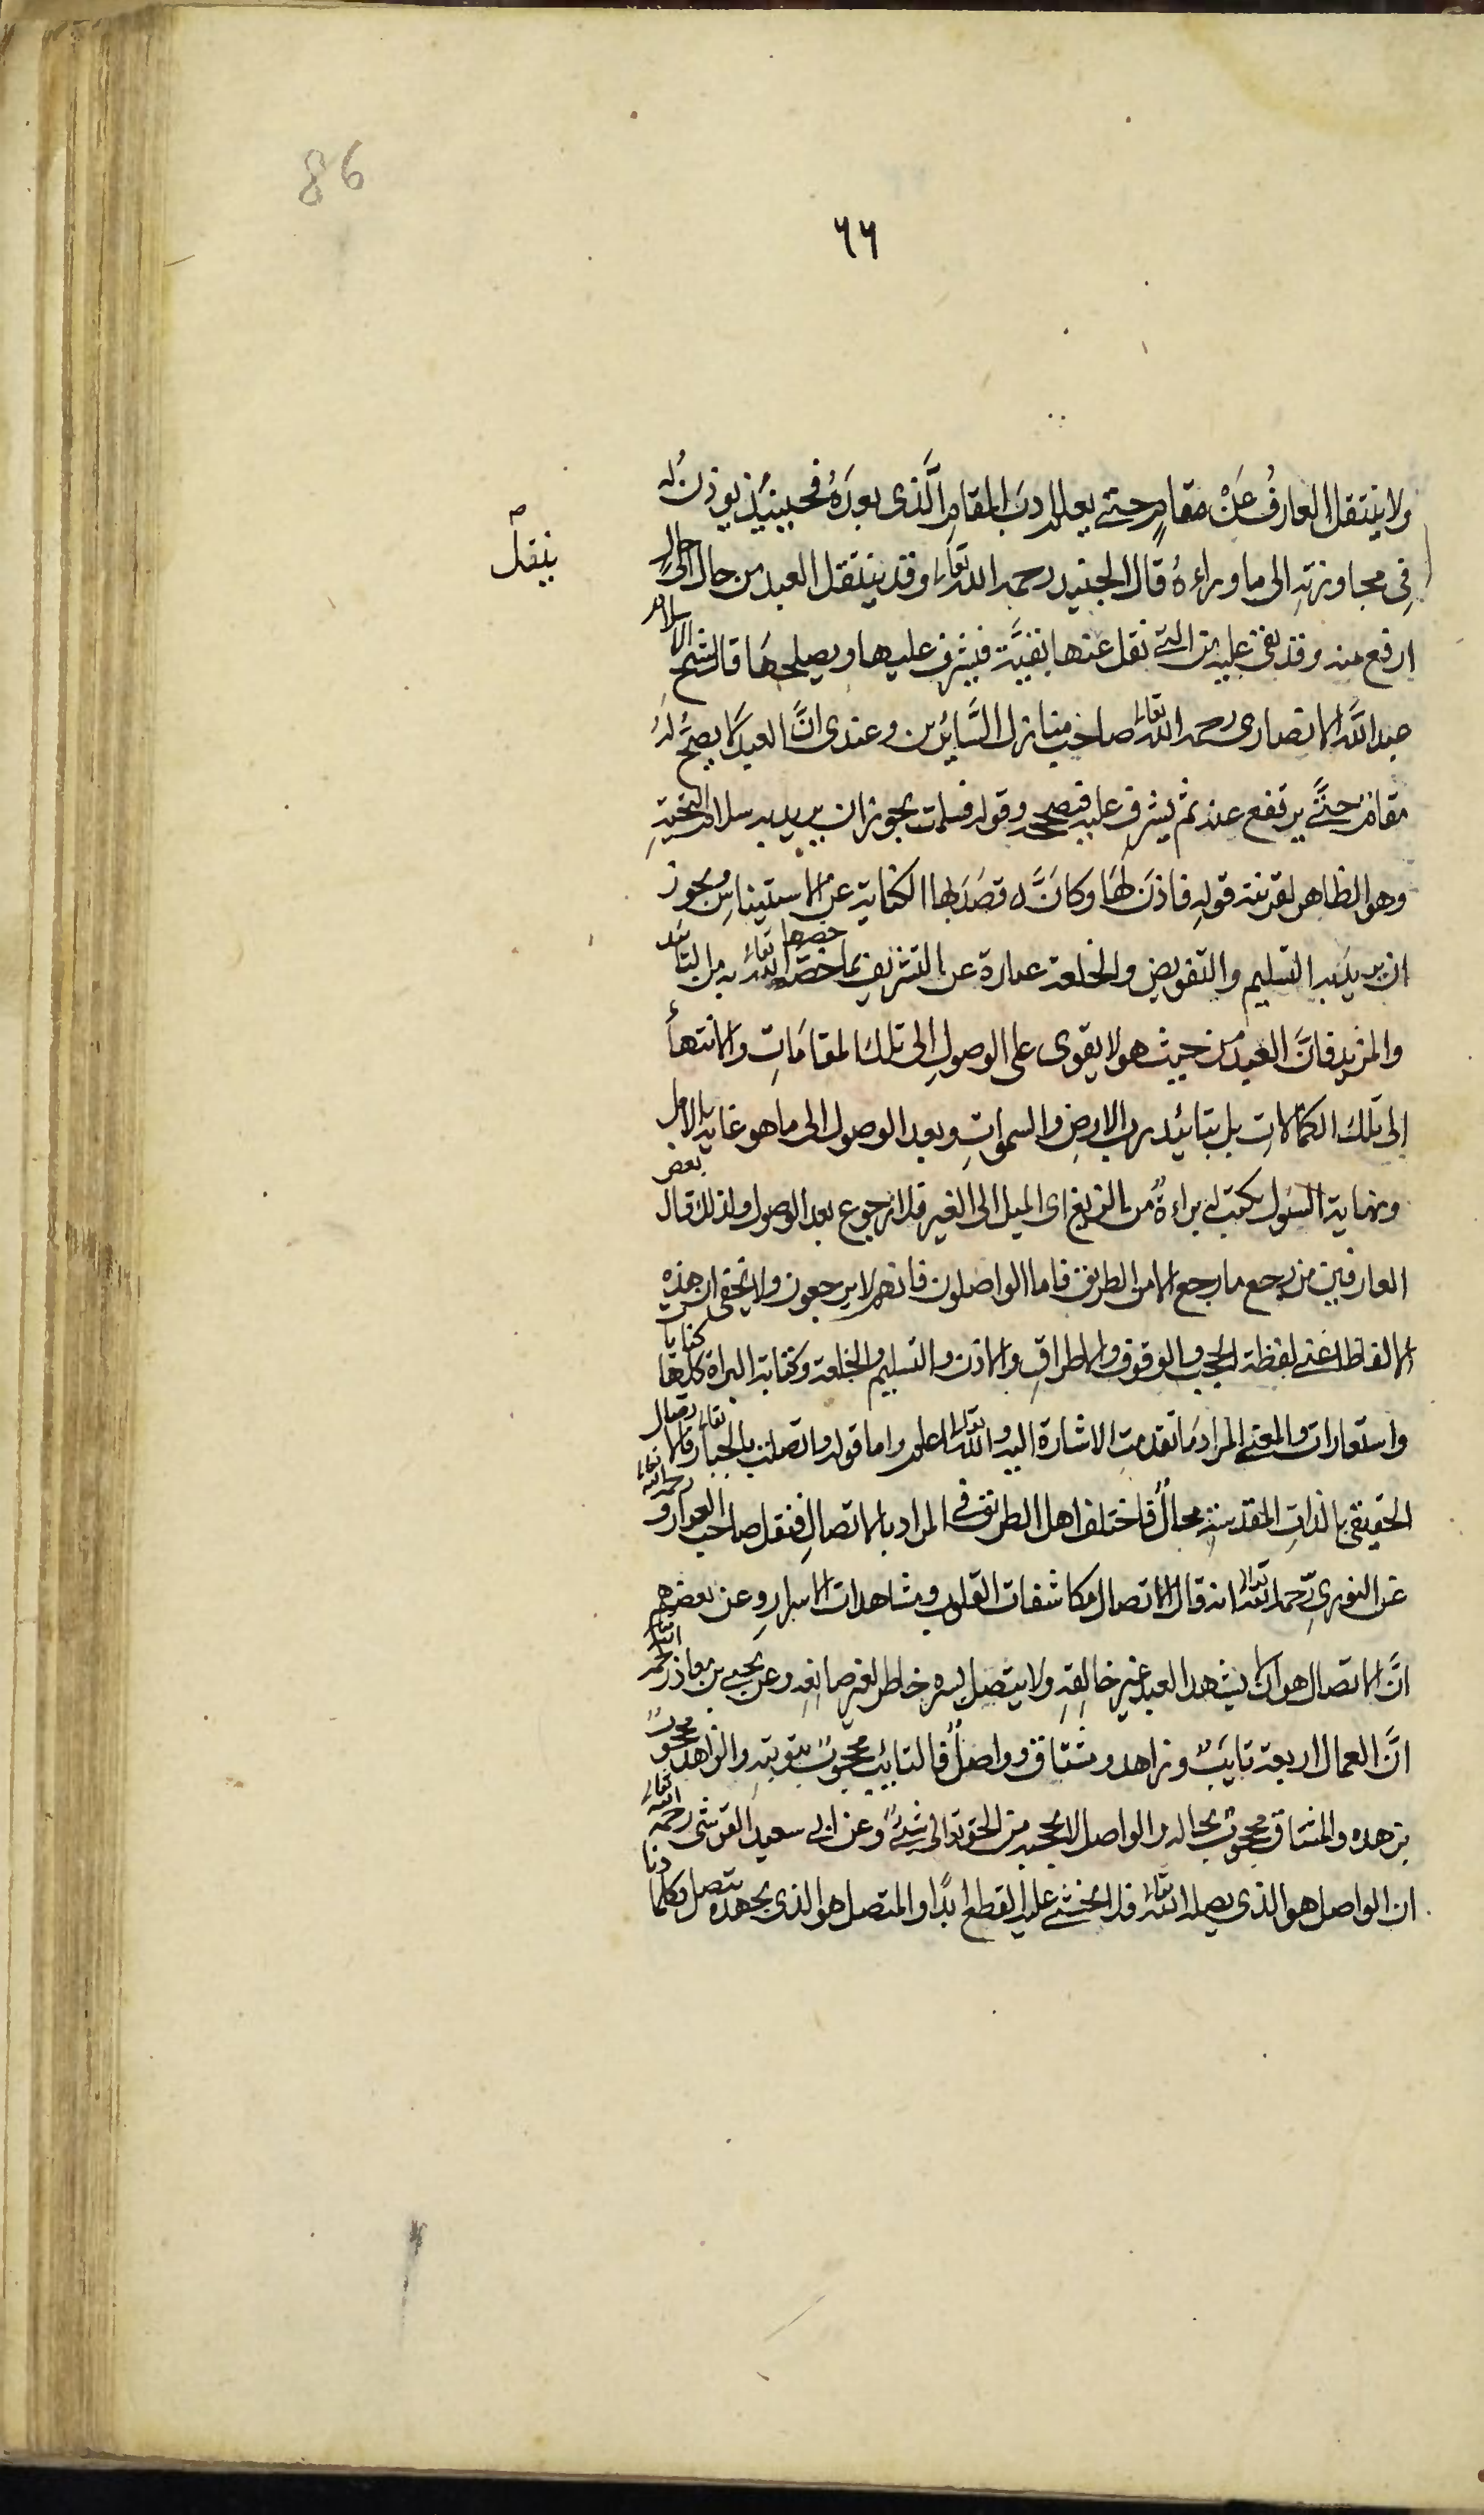 86
٦٦
ولا ينتقل العارفُ عَنْ مقامٍ حتى يعلم ادبَ المقامِ الَّذى بعدَهُ فحينئذٍ يوذنُ لهُ
فِى مجاوزتهِ الى ما وراءهُ قال الجنيد رحمه الله تعالى وقد ينتقل العبد من حال الى حالٍ
ينقل
ارفع منه وقد بقى عليه من التى نقل عنها بقيَّة فيشرف عليها ويصلحهَا قال شيخ الاسلام
عبد الله الانصارى رحمه الله تعالى صاحب منازل السَّائرين وعندى انَّ العبد لا يصحُّ لهُ
مقام حتَّى يرتفع عنه ثم يشرف عليه فيصححه وقوله فسلمت يجوز ان يريد به سلام التحيةِ
وهو الظاهر لقرينة قوله فاذنَ لهَا وكانَّه قصَدَ بها الكناية عن الاستيناسِ ويجوز
ان يريد به التسليم والتفويض والخلعة عبارة عن التشريف بما خصّها الله تعالى به من التائيد
خصها
والمزيد فانَّ العبد من حيث هو لا يقوى على الوصولِ الى تلك المقامَاتِ والانتهاء
الى تلك الكمالاتِ بل بتائيد رب الارضِ والسمواتِ وبعد الوصول الى ما هو غاية الامل
ونهاية السّول يكتب له براءةٌ من الزيغ اى الميل الى الغير فلا رجوع بعد الوصول ولذلك قال بعض
العارفين من رجع ما رجع الا من الطريق فاما الواصلون فانهم لا يرجعون ولا يخفى ان هذهِ
الالفاظ اعنى لفظة الحجب والوقوف والاطراقِ والاذن والتسليم والخلعة وكتابة البراة كلها كنايا
واستعارات والمعنى المراد ما تقدمتِ الاشارة اليه والله تعالى اعلم واما قوله واتصلت بالجبار تعالى فالاتصال
الحقيقى بالذاتِ المقدسةِ محالٌ فاختلف اهل الطريق فى المراد بالاتصالِ فنقل صاحب العوارف رحمه الله تعالى
عن النورىِّ رحمه الله تعالى انه قال الاتصال مكاشفات القلوب ومشاهدات الاسرارِ وعن بعضهم
انَّ الاتصال هو ان لا يشهد العبد غير خالقهِ ولا يتصل بسره خاطر لغير صانعهِ وعن يحيى بن معاذ رحمه الله تعالى
انَّ العمال اربعة تايبٌ وزاهد ومشتاق وواصلٌ فالتايب محجوبٌ بتوبتهِ والزاهد محجوبٌ
بزهده والمشتاق محجوبٌ بحاله والواصل لا يحجبه من الحق تعالى شئٌ وعن ابى سعيد القرشى رحمه الله تعالى
ان الواصل هو الذى يصله الله تعالى فلا يخشى عليه القطع ابدًا والمتصل هو الذى بجهده يتصل وكلما دنا